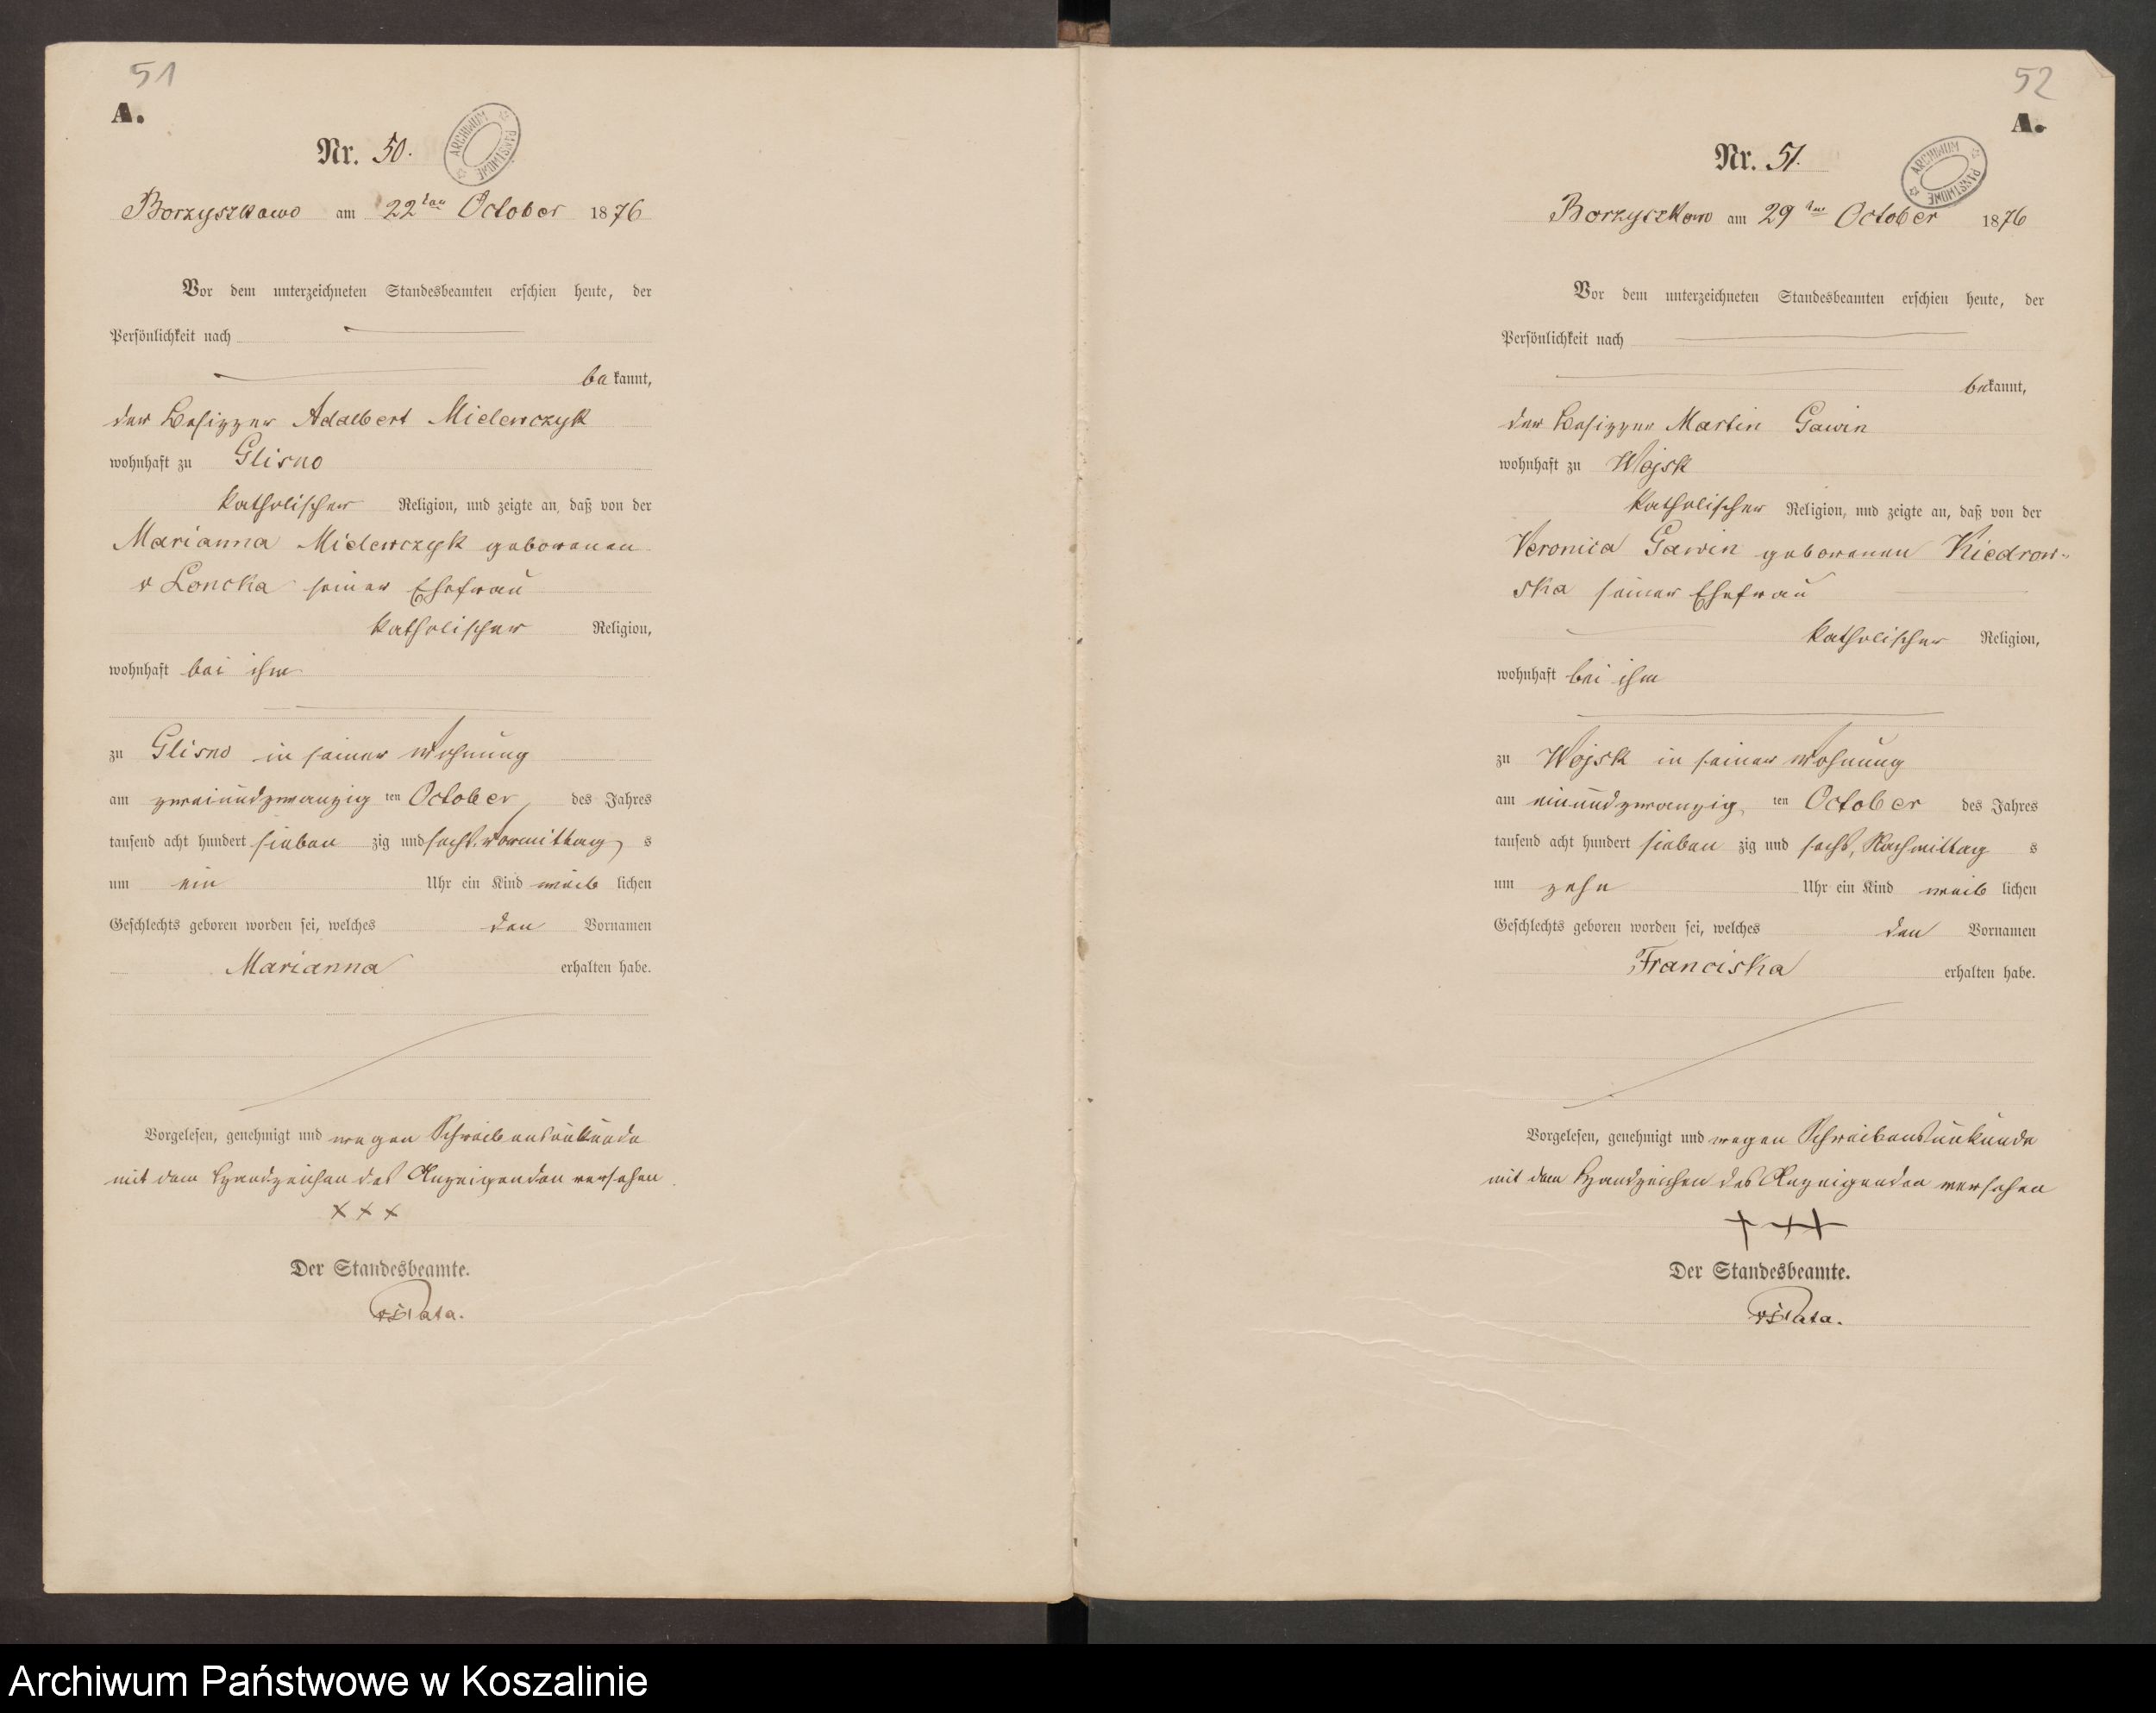 51
A.
Nr. 50.
ARCHIWUM PAŃSTWOWE
Borzyszkowo am 22ten October 1876
Vor dem unterzeichneten Standesbeamten erschien heute, der
Persönlichkeit nach
bekannt,
der Besitzer Adalbert Mielewczyk
wohnhaft zu Glisno
katholischer Religion, und zeigte an, daß von der
Marianna Mielewczyk geborenen
v Loncka seiner Ehefrau
katholischer Religion,
wohnhaft bei ihm
zu Glisno in seiner Wohnung
am zweiundzwanzig ten October, des Jahres
tausend acht hundert sieben zig und sechs Vormittag s
um ein Uhr ein Kind weib lichen
Geschlechts geboren worden sei, welches den Vornamen
Marianna erhalten habe.
Vorgelesen, genehmigt und wegen Schreibensunkunde
mit dem Handzeichen des Anzeigenden versehen
x x x
Der Standesbeamte.
52
A.
Nr. 51.
ARCHIWUM PAŃSTWOWE
Borzyszkowo am 29ten October 1876
Vor dem unterzeichneten Standesbeamten erschien heute, der
Persönlichkeit nach
bekannt,
der Besitzer Martin Gawin
wohnhaft zu Wojsk
katholischer Religion, und zeigte an, daß von der
Veronica Gawin geborenen Kiedrow-
ska seiner Ehefrau
katholischer Religion,
wohnhaft bei ihm
zu Wojsk in seiner Wohnung
am einundzwanzig ten October des Jahres
tausend acht hundert sieben zig und sechs, Nachmittag s
um zehn Uhr ein Kind weib lichen
Geschlechts geboren worden sei, welches den Vornamen
Franciska erhalten habe.
Vorgelesen, genehmigt und wegen Schreibensunkunde
mit dem Handzeichen des Anzeigenden versehen
+ + +
Der Standesbeamte.
Archiwum Państwowe w Koszalinie